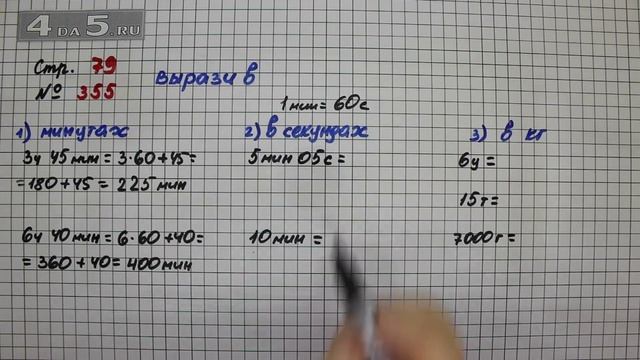 4 DA 5.RU
Стр. 79
№ 355
Вырази в
1 мин = 60с
1) минутах
3ч 45 мин = 3·60+45=
=180+45 = 225 мин
6ч 40 мин = 6·60+40=
= 360 + 40 = 400 мин
2) в секундах
5 мин 05 с =
10 мин =
3) в кг
6ц =
15т =
7000г =